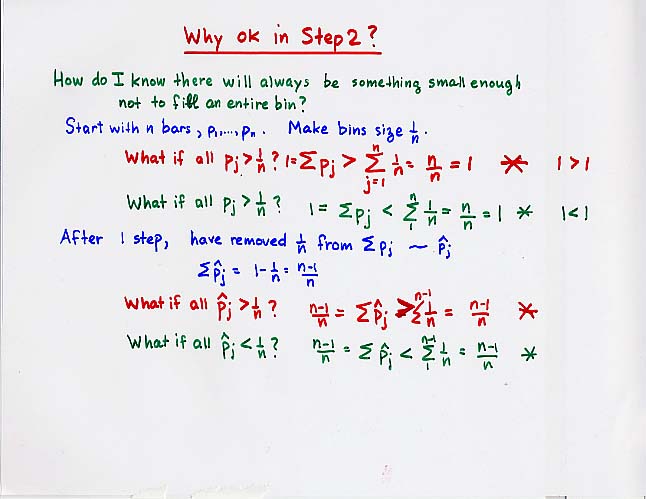 Why ok in Step 2?
How do I know there will always be something small enough
not to fill an entire bin?
Start with n bars, p₁,...,pₙ. Make bins size 1/n.
What if all pⱼ > 1/n? 1 = Σ pⱼ > Σ_{j=1}^{n} 1/n = n/n = 1 * 1 > 1
What if all pⱼ > 1/n? 1 = Σ pⱼ < Σ_{1}^{n} 1/n = n/n = 1 * 1 < 1
After 1 step, have removed 1/n from Σ pⱼ ~ p̂ⱼ
Σ p̂ⱼ = 1 - 1/n = n-1/n
What if all p̂ⱼ > 1/n? n-1/n = Σ p̂ⱼ > Σ^{n-1} 1/n = n-1/n *
What if all p̂ⱼ < 1/n? n-1/n = Σ p̂ⱼ < Σ_{1}^{n-1} 1/n = n-1/n *